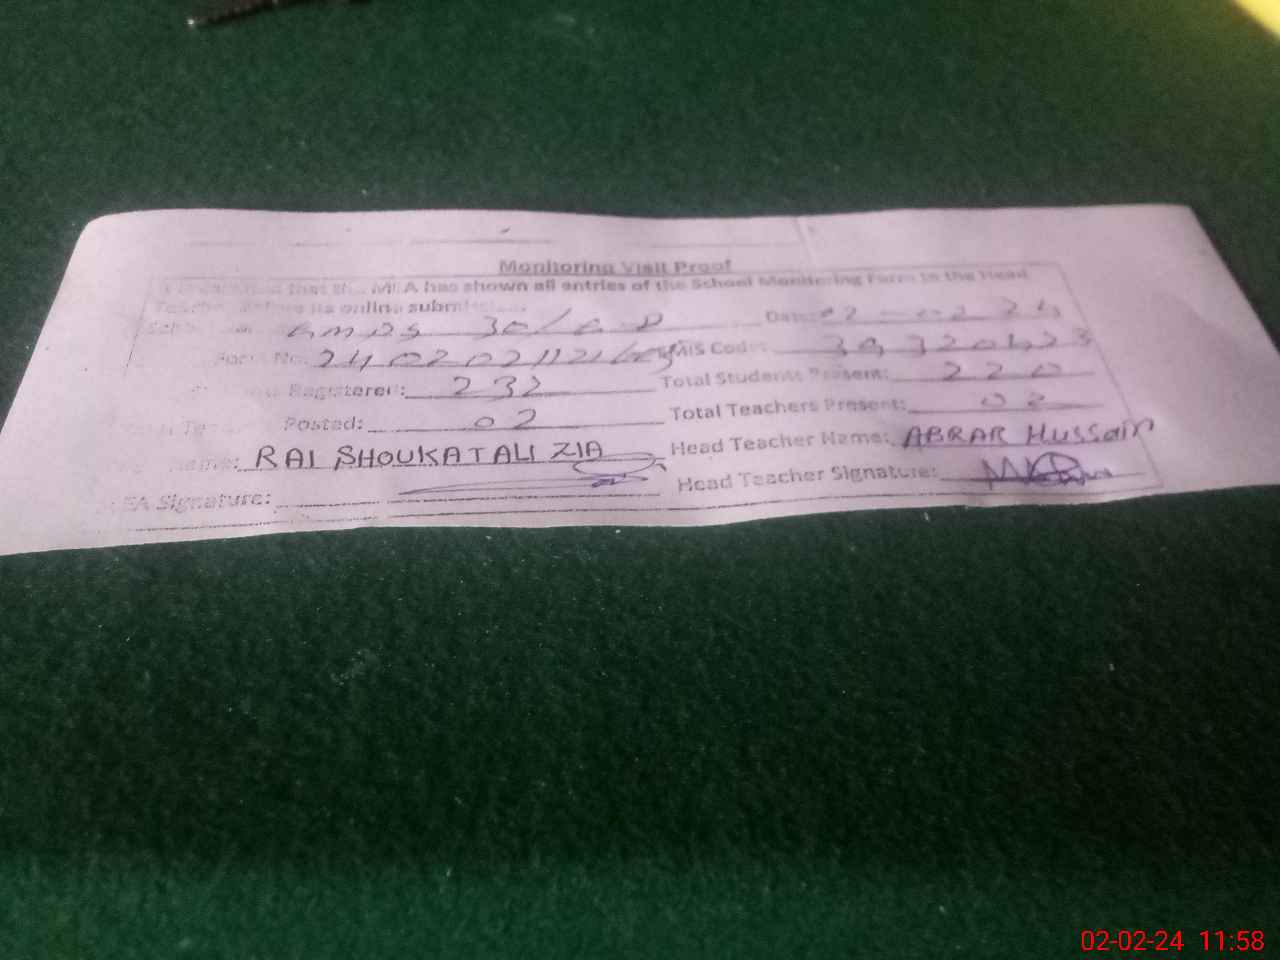 Monitoring Visit Proof
that the MEA has shown all entries of the School Monitoring Form to the Head
Teacher before its online
Date: 02-02-24
No. EMIS Code: 39320423
Registered: 232 Total Students Present: 220
Posted: 02 Total Teachers Present: 02
Name: RAI SHOUKAT ALI ZIA Head Teacher Name: ABRAR HUSSAIN
MEA Signature: Head Teacher Signature:
02-02-24 11:58